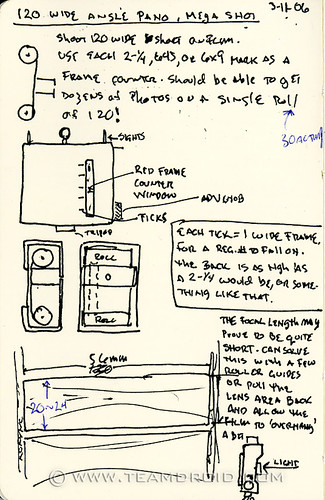 120 WIDE ANGLE PANO, MEGA SHOT
3-11-06
SHOOT 120 WIDE SHORT ON FILM.
USE EACH 2-1/4, 6x45, OR 6x9 MARK AS A
FRAME COUNTER. SHOULD BE ABLE TO GET
DOZENS OF PHOTOS ON A SINGLE ROLL
OF 120!
30 ACTUAL
SIGHTS
RED FRAME
COUNTER
WINDOW
ADV KNOB
TICKS
TRIPOD
EACH TICK = 1 WIDE FRAME,
FOR A REG. # TO FALL ON.
THE BACK IS AS HIGH AS
A 2-1/4 WOULD BE, OR SOME-
THING LIKE THAT.
ROLL
O
ROLL
THE FOCAL LENGTH MAY
PROVE TO BE QUITE
SHORT. CAN SOLVE
THIS WITH A FEW
ROLLER GUIDES
OR PULL THE
LENS AREA BACK
AND ALLOW THE
FILM TO 'OVERHANG'
A BIT
56mm
20~24
LIGHT
© WWW.TEAMDROID.COM